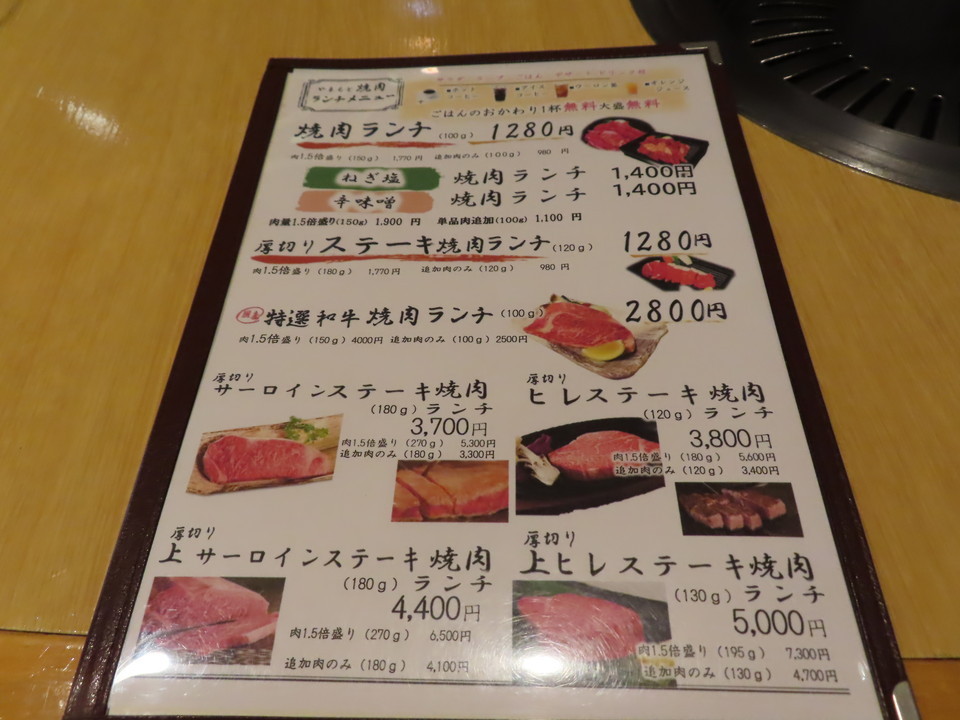 やまもと 焼肉
ランチメニュー
サラダ・スープ・ごはん・デザート・ドリンク付
●ホットコーヒー ●アイスコーヒー ●ウーロン茶 ●オレンジジュース
ごはんのおかわり1杯無料大盛無料
焼肉ランチ(100g) 1280円
肉1.5倍盛り(150g) 1,770円 追加肉のみ(100g) 980 円
ねぎ塩 焼肉ランチ 1,400円
辛味噌 焼肉ランチ 1,400円
肉量1.5倍盛り(150g) 1.900 円 単品肉追加(100g) 1.100 円
厚切りステーキ焼肉ランチ(120g) 1280円
肉1.5倍盛り(180g) 1,770円 追加肉のみ(120g) 980 円
特選和牛焼肉ランチ(100g) 2800円
肉1.5倍盛り(150g)4000円 追加肉のみ(100g)2500円
厚切り
サーロインステーキ焼肉
(180g)ランチ
3,700円
肉1.5倍盛り(270g) 5,300円
追加肉のみ(180g) 3,300円
厚切り
ヒレステーキ焼肉
(120g)ランチ
3,800円
肉1.5倍盛り(180g) 5,600円
追加肉のみ(120g) 3,400円
厚切り
上サーロインステーキ焼肉
(180g)ランチ
4,400円
肉1.5倍盛り(270g) 6,500円
追加肉のみ(180g) 4,100円
厚切り
上ヒレステーキ焼肉
(130g)ランチ
5,000円
肉1.5倍盛り(195g) 7,300円
追加肉のみ(130g) 4,700円